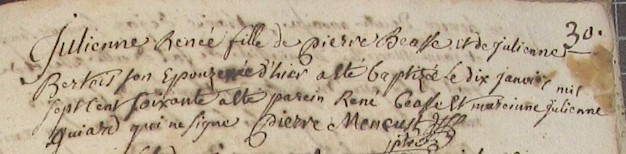 30.
Julienne Renée fille de pierre Beasse et de julienne
Bertois son Epouze née d'hier a ete baptizée le dix janvier mil
sept cent soixante a ete parein René beasse et mareinne julienne
guiard qui ne signe pierre Meneust